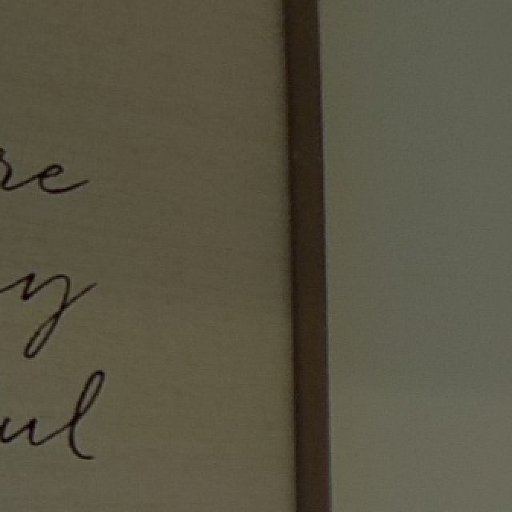 re
y
ul